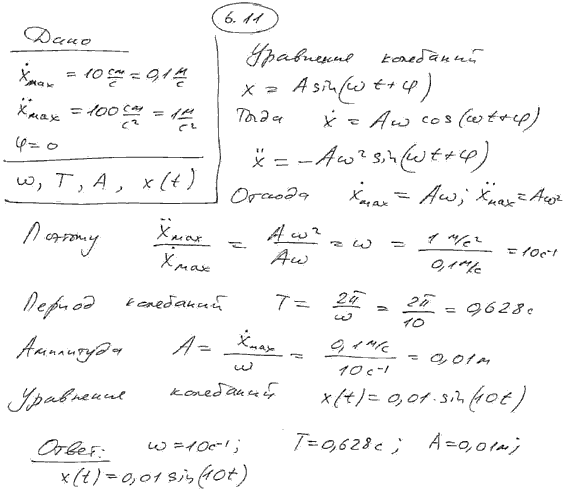 6.11
Дано
ẋmax = 10 см/с = 0,1 м/с
ẍmax = 100 см/с² = 1 м/с²
φ = 0
ω, T, A, x(t)
Уравнение колебаний
x = A sin(ωt+φ)
Тогда ẋ = Aω cos(ωt+φ)
ẍ = -Aω² sin(ωt+φ)
Отсюда ẋmax = Aω; ẍmax = Aω²
Поэтому ẍmax/ẋmax = Aω²/Aω = ω = 1 м/с²/0,1 м/с = 10 с⁻¹
Период колебаний T = 2π/ω = 2π/10 = 0,628 с
Амплитуда A = ẋmax/ω = 0,1 м/с/10 с⁻¹ = 0,01 м
Уравнение колебаний x(t) = 0,01·sin(10t)
Ответ: ω = 10 с⁻¹; T = 0,628 с; A = 0,01 м;
x(t) = 0,01 sin(10t)